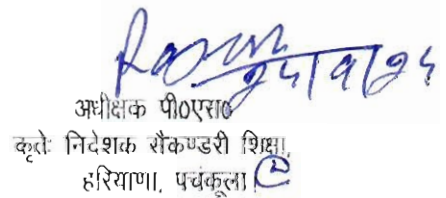 24/9/24
अधीक्षक पी०एस०
कृतेः निदेशक सैकण्डरी शिक्षा,
हरियाणा, पचंकूला।